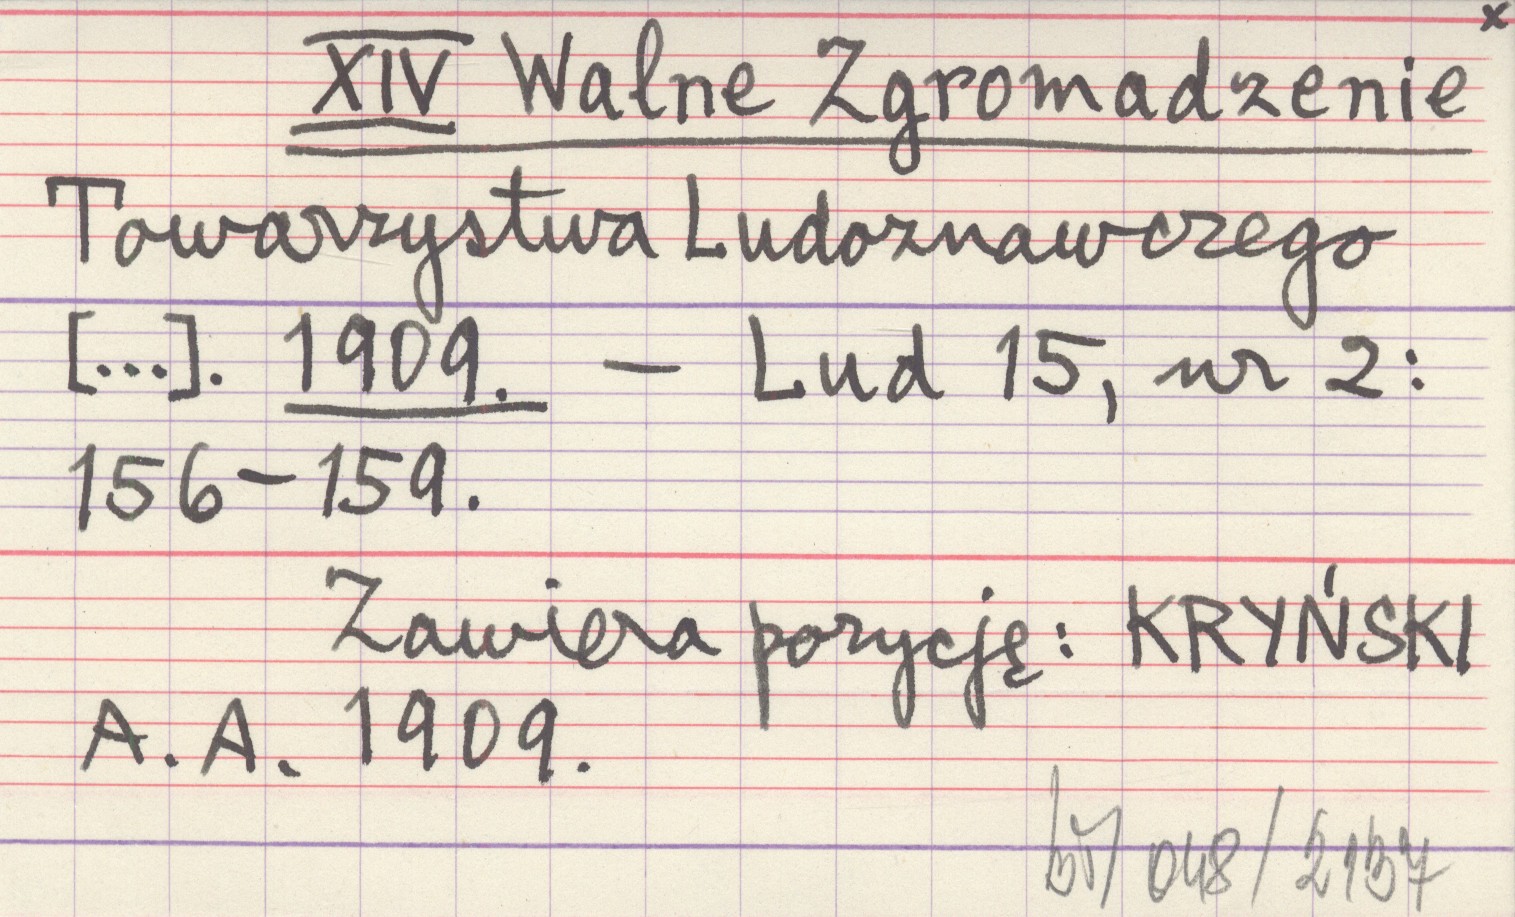 x
XIV Walne Zgromadzenie
Towarzystwa Ludoznawczego
[...]. 1909. — Lud 15, nr 2:
156-159.
Zawiera pozycję: KRYŃSKI
A. A. 1909.
048/2137